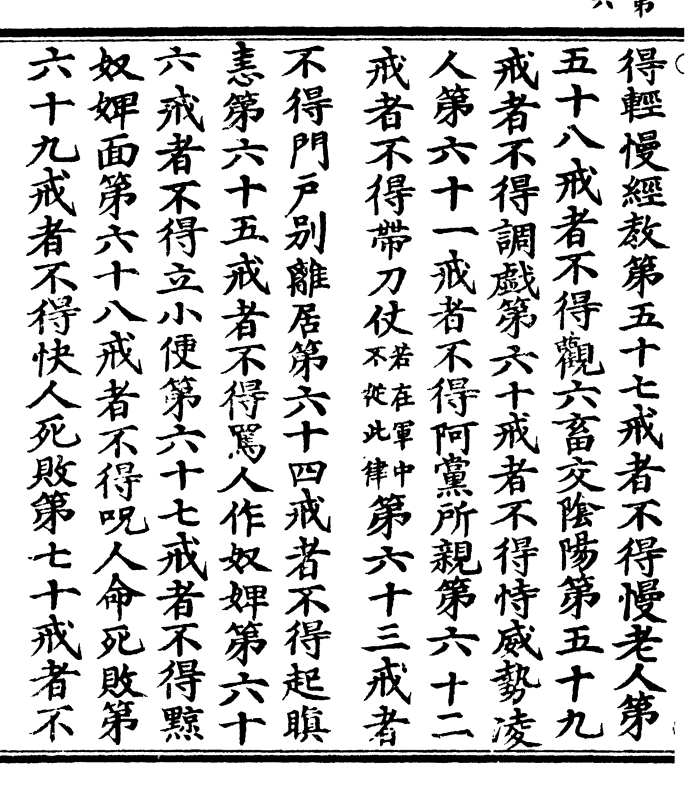 得輕慢經教第五十七戒者不得慢老人第
五十八戒者不得觀六畜交陰陽第五十九
戒者不得調戲第六十戒者不得恃威勢凌
人第六十一戒者不得阿黨所親第六十二
戒者不得帶刀仗若在軍中不從此律第六十三戒者
不得門戶別離居第六十四戒者不得起瞋
恚第六十五戒者不得罵人作奴婢第六十
六戒者不得立小便第六十七戒者不得黥
奴婢面第六十八戒者不得呪人命死敗第
六十九戒者不得快人死敗第七十戒者不